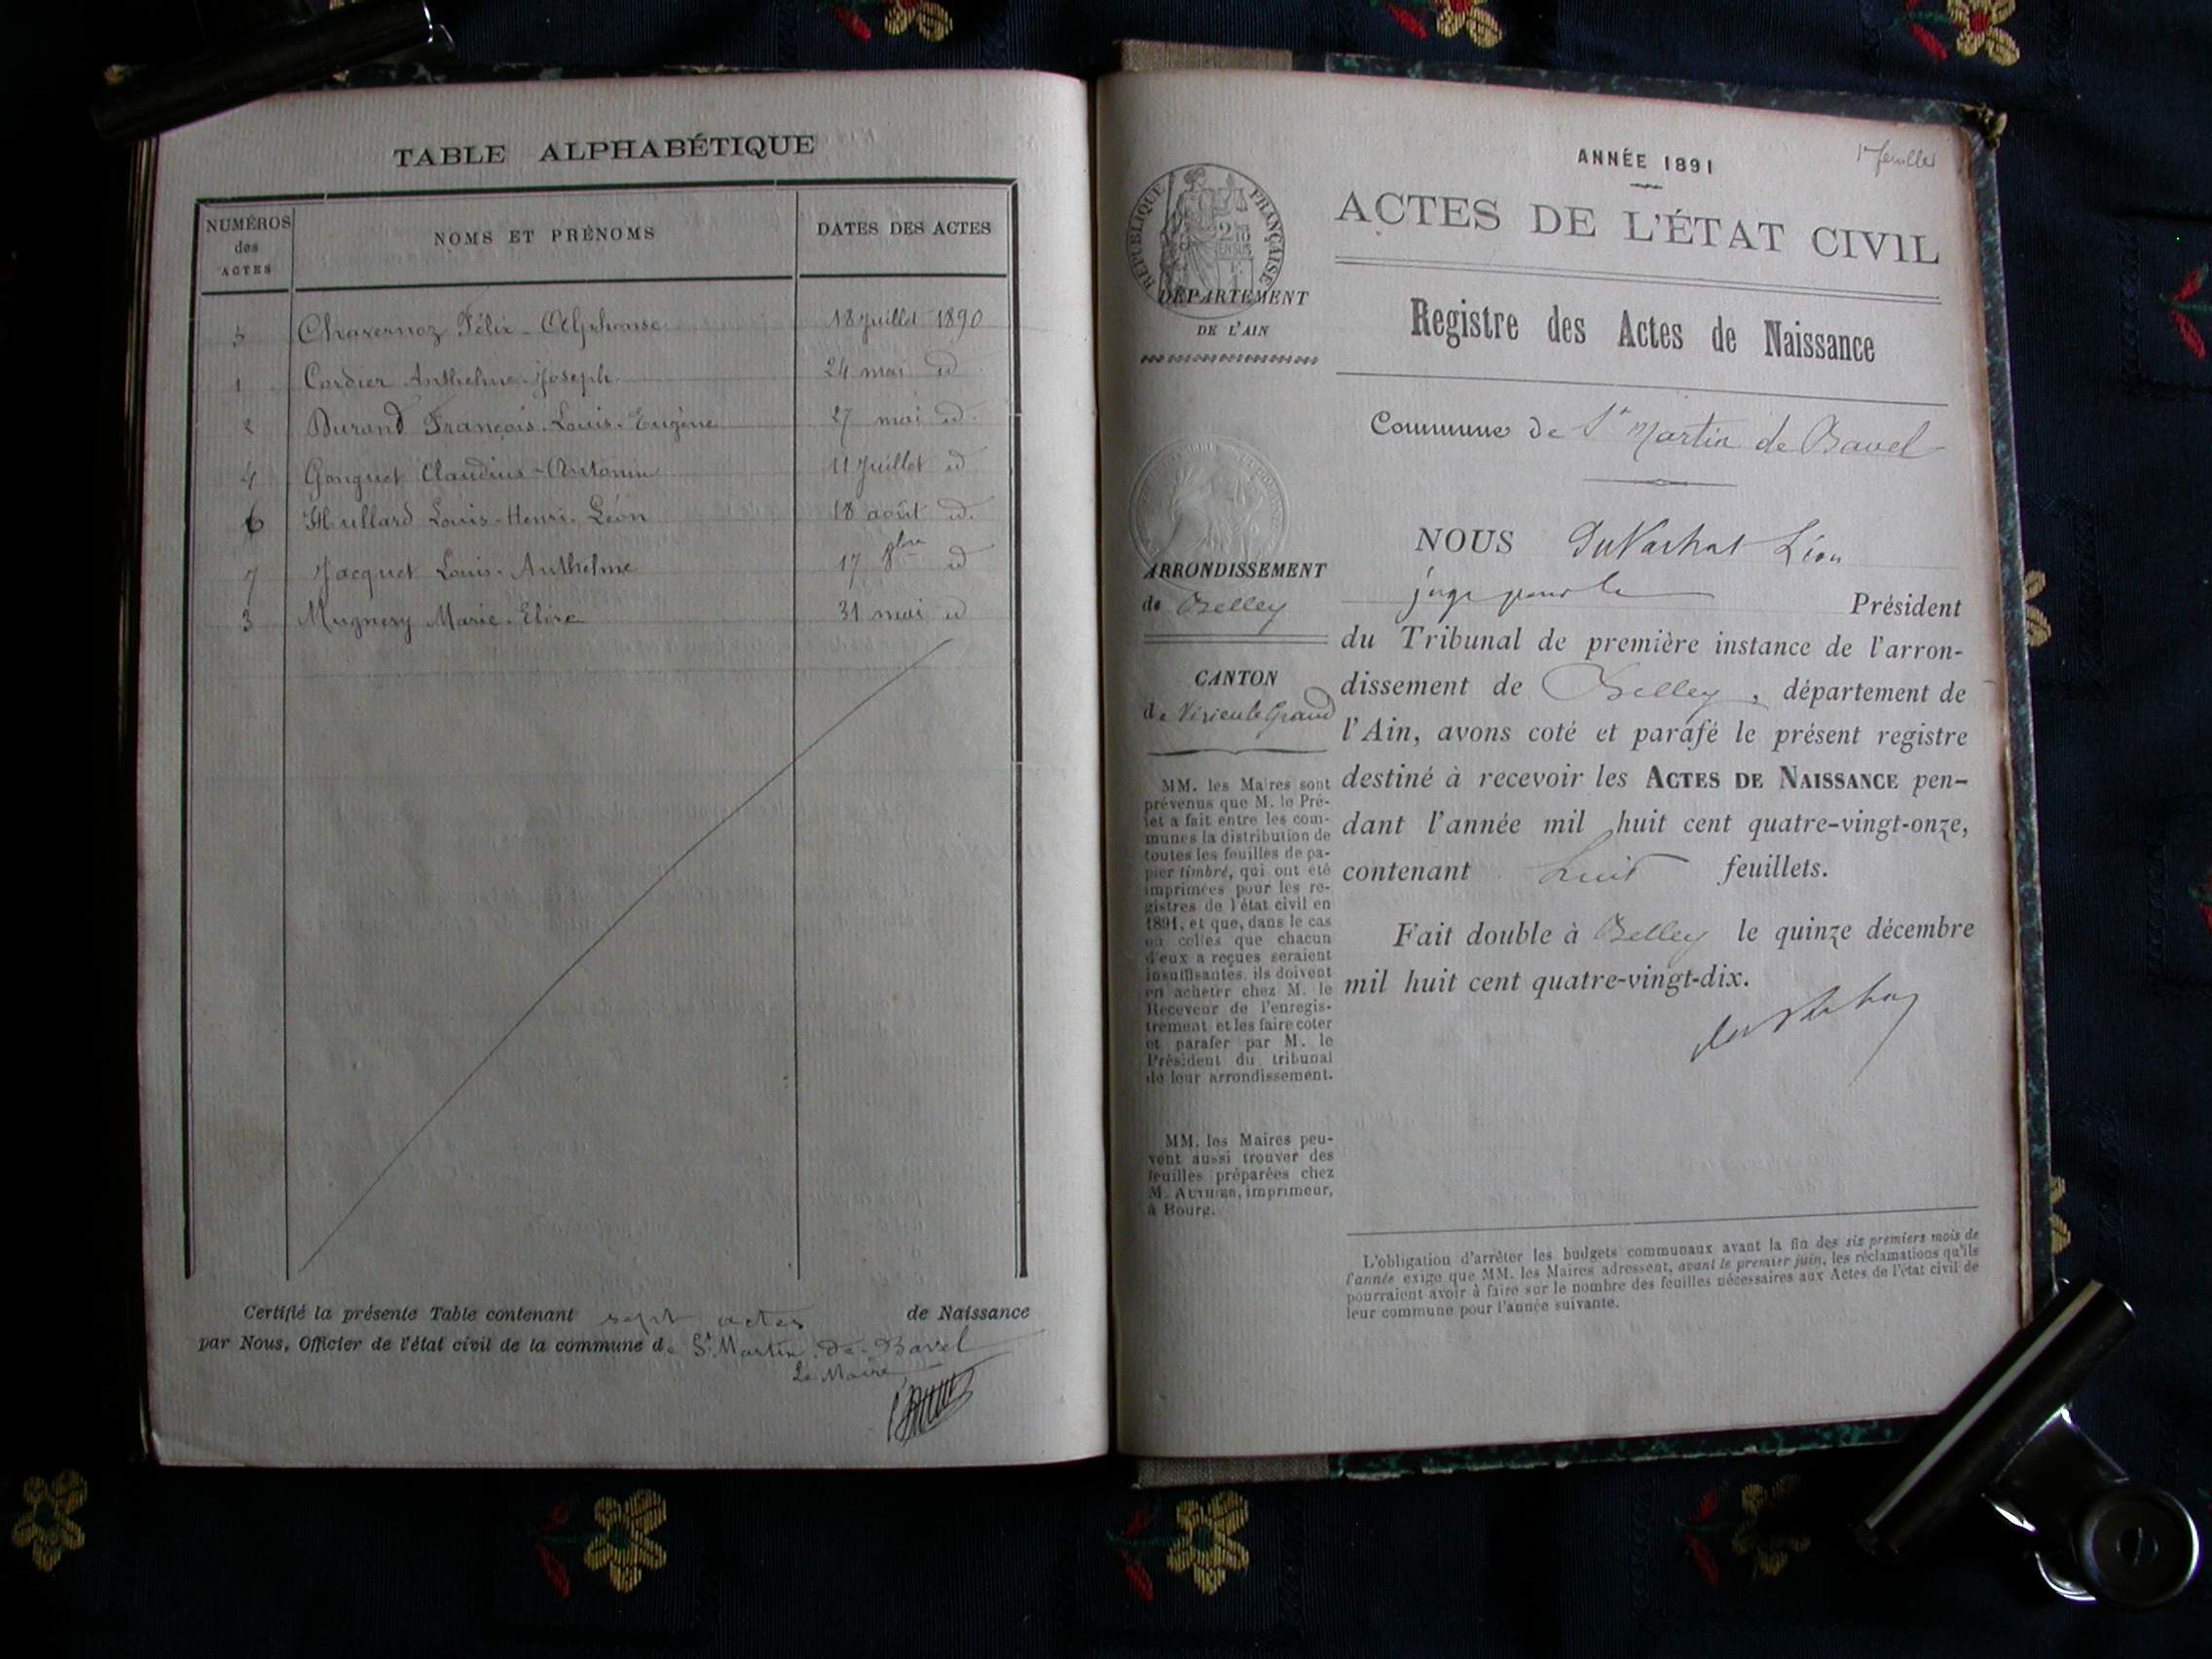 TABLE ALPHABÉTIQUE
NUMÉROS des ACTES
NOMS ET PRÉNOMS
DATES DES ACTES
5 Charvernoz Félix-Alphonse 18 juillet 1890
1 Cordier Anthelme-Joseph 24 mai id
2 Durand François-Louis-Eugène 27 mai id.
4 Gonguet Claudius-Antonin 11 Juillet id
6 Hullard Louis-Henri-Léon 18 août id.
7 Jacquet Louis-Anthelme 17 id
3 Mugnery Marie-Elise 31 mai id
Certifié la présente Table contenant sept actes de Naissance
par Nous, Officier de l'état civil de la commune de St Martin-de-Bavel
Le Maire,
ANNÉE 1891
1er feuillet
ACTES DE L'ÉTAT CIVIL
RÉPUBLIQUE FRANÇAISE
DÉPARTEMENT
DE L'AIN
Registre des Actes de Naissance
Commune de St Martin de Bavel
ARRONDISSEMENT
de Belley
CANTON
de Virieu le Grand
MM. les Maires sont
prévenus que M. le Pré-
fet a fait entre les com-
munes la distribution de
toutes les feuilles de pa-
pier timbré, qui ont été
imprimées pour les re-
gistres de l'état civil en
1891, et que, dans le cas
où celles que chacun
d'eux a reçues seraient
insuffisantes, ils doivent
en acheter chez M. le
Receveur de l'enregis-
trement et les faire coter
et parafer par M. le
Président du tribunal
de leur arrondissement.
MM. les Maires peu-
vent aussi trouver des
feuilles préparées chez
M. Authier, imprimeur,
à Bourg.
NOUS Léon
juge pour le Président
du Tribunal de première instance de l'arron-
dissement de Belley, département de
l'Ain, avons coté et parafé le présent registre
destiné à recevoir les ACTES DE NAISSANCE pen-
dant l'année mil huit cent quatre-vingt-onze,
contenant huit feuillets.
Fait double à Belley le quinze décembre
mil huit cent quatre-vingt-dix.
L'obligation d'arrêter les budgets communaux avant la fin des six premiers mois de
l'année exige que MM. les Maires adressent, avant le premier juin, les réclamations qu'ils
pourraient avoir à faire sur le nombre des feuilles nécessaires aux Actes de l'état civil de
leur commune pour l'année suivante.